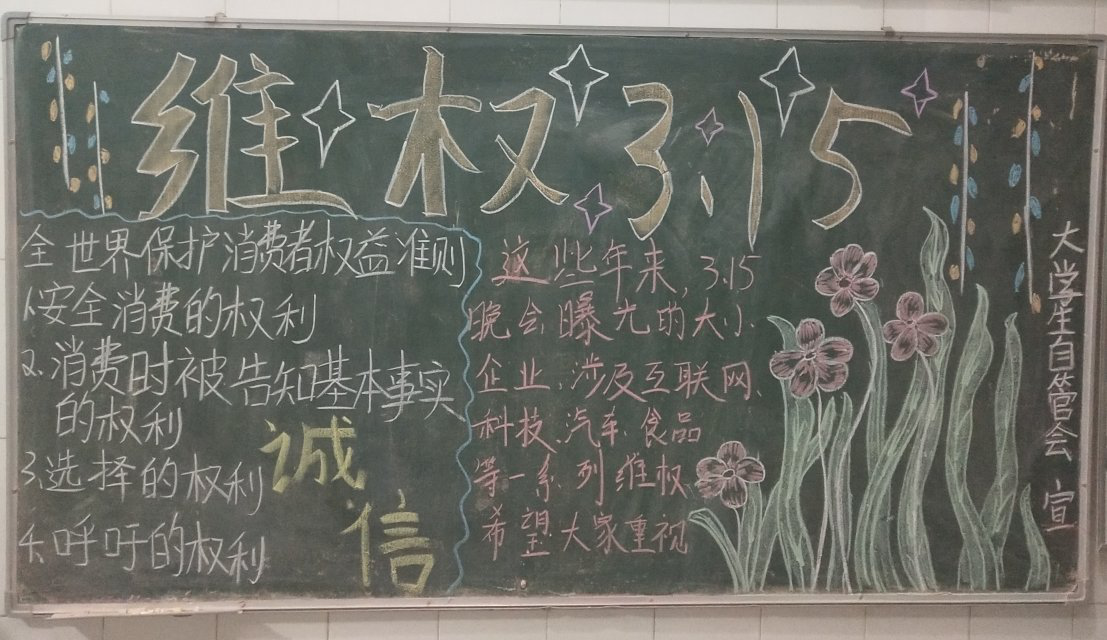 维权3.15
全世界保护消费者权益准则
1.安全消费的权利
2.消费时被告知基本事实
的权利
3.选择的权利
4.呼吁的权利
诚
信
这些年来,3.15
晚会曝光的大小
企业,涉及互联网、
科技、汽车、食品
等一系列维权
希望大家重视
大学生自管会 宣